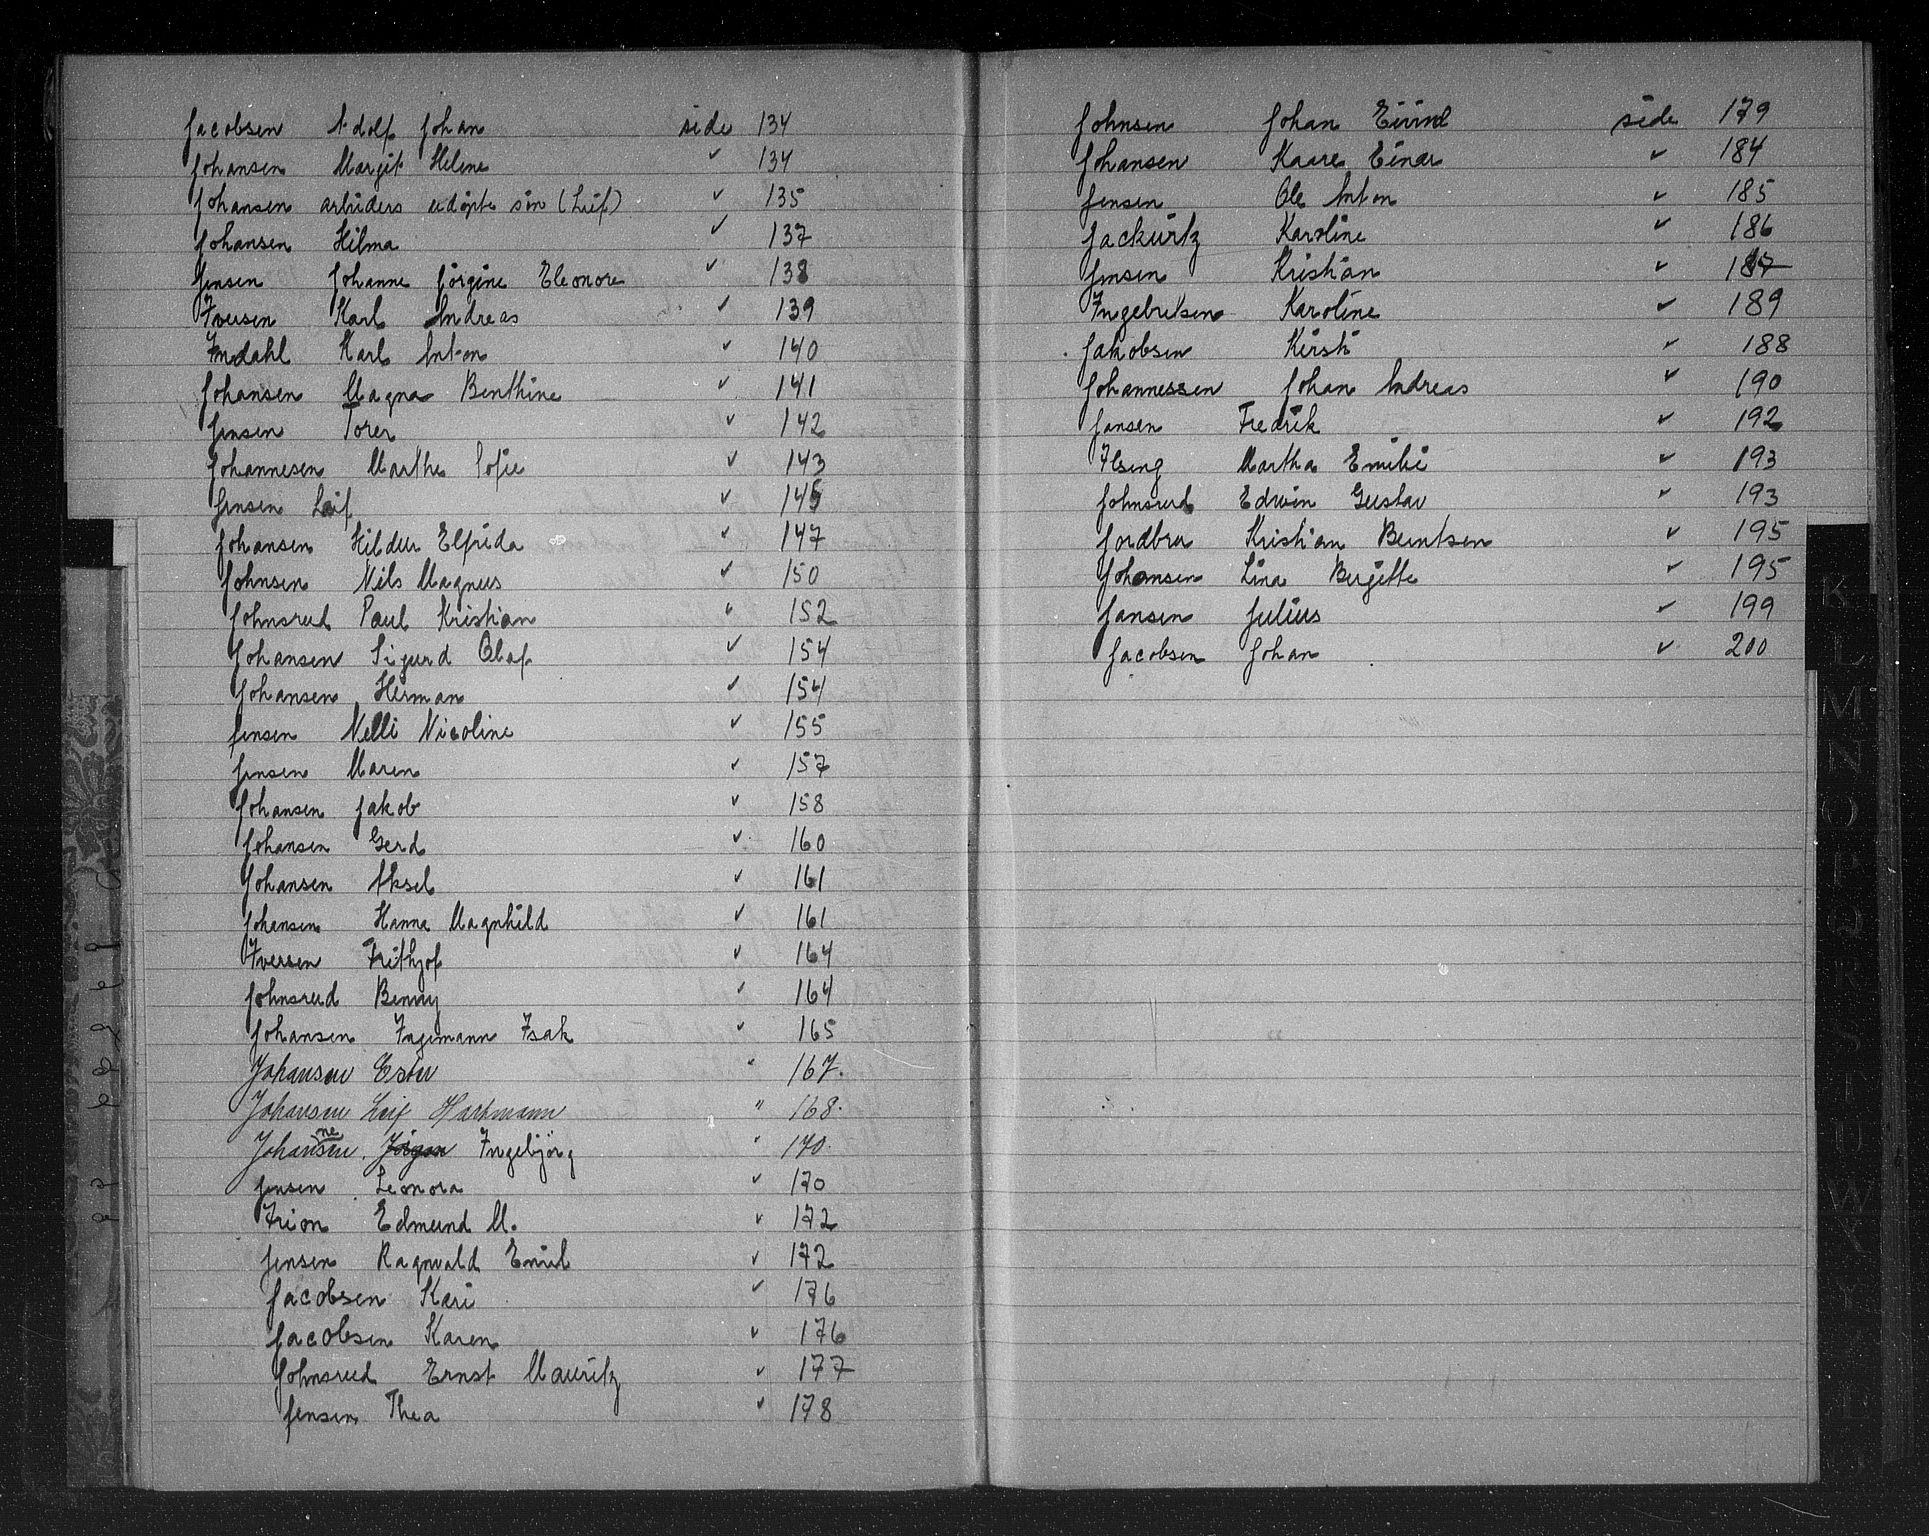 Jacobsen Adolf Johan side 134
Johansen Margit Helene " 134
Johansen arbeiders adopte søn (Leif) " 135
Johansen Hilma " 137
Jensen Johanne Jörgine Eleonore " 138
Iversen Karl Andreas " 139
Indahl Karl Anton " 140
Johansen Magna Benthine " 141
Jensen Torer " 142
Johannesen Marthe Sofie " 143
Jensen Leif " 145
Johansen Hildur Elfrida " 147
Johnsen Nils Magnus " 150
Johnsrud Paul Kristian " 152
Johansen Sigurd Olaf " 154
Johansen Herman " 154
Jensen Nelli Nicoline " 155
Jensen Maren " 157
Johansen Jakob " 158
Johansen Gerd " 160
Johansen Aksel " 161
Johansen Hanna Magnhild " 161
Iversen Frithjof " 164
Johnsrud Benny " 164
Johansen Ingemann Isak " 165
Johansen Ester " 167.
Johansen Leif Hartmann " 168.
Johannesen. Ingebjörg " 170.
Jensen Leonora " 170
Irion Edmund M. " 172
Jensen Ragnvald Emil " 172
Jacobsen Kari " 176
Jacobsen Karen " 176
Johnsrud Ernst Mauritz " 177
Jensen Thea " 178
Johnsen Johan Eivind side 179
Johansen Kaare Einar " 184
Jensen Ole Anton " 185
Jackwitz Karoline " 186
Jensen Kristian " 187
Ingebriksen Karoline " 189
Jakobsen Kirsti " 188
Johannessen Johan Andreas " 190
Jansen Fredrik " 192
Ilseng Martha Emilie " 193
Johnsrud Edwin Gustav " 193
Jordbru Kristian Berntsen " 195
Johansen Lina Birgitte " 195
Jansen Julius " 199
Jacobsen Johan " 200
K
L
M
N
O
P
Q
R
S
T
U
W
X
Y